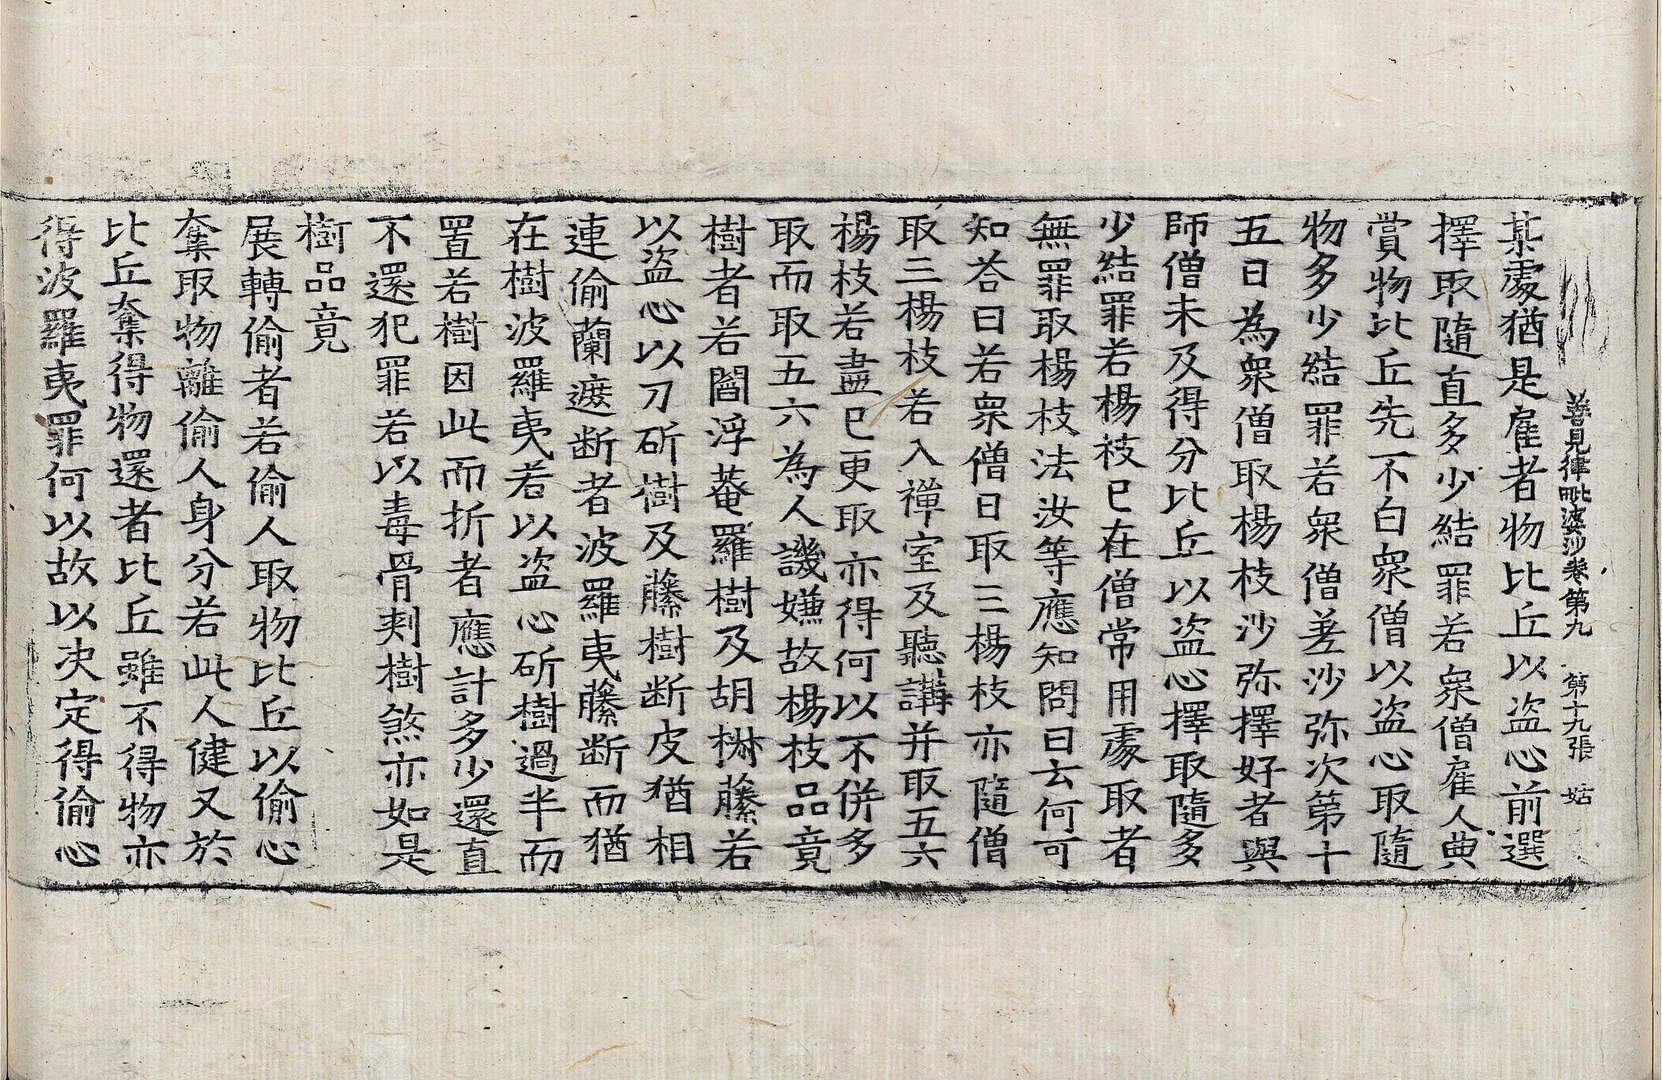 善見律毗婆沙卷第九　第十九張　姑
某處猶是雇者物比丘以盜心前選
擇取隨直多少結罪若衆僧雇人典
賞物比丘先不白衆僧以盜心取隨
物多少結罪若衆僧差沙弥次第十
五日為衆僧取楊枝沙弥擇好者與
師僧未及得分比丘以盜心擇取隨多
少結罪若楊枝已在僧常用處取者
無罪取楊枝法汝等應知問曰云何可
知荅曰若衆僧日取三楊枝亦隨僧
取三楊枝若入禪室及聽講并取五六
楊枝若盡已更取亦得何以不併多
取而取五六為人譏嫌故楊枝品竟
樹者若閻浮菴羅樹及胡椒藤若
以盜心以刀斫樹及藤樹断皮猶相
連偷蘭遮断者波羅夷藤断而猶
在樹波羅夷若以盜心斫樹過半而
置若樹因此而折者應計多少還直
不還犯罪若以毒骨刾樹煞亦如是
樹品竟
展轉偷者若偷人取物比丘以偷心
奪取物離偷人身分若此人健又於
比丘奪得物還者比丘雖不得物亦
得波羅夷罪何以故以決定得偷心